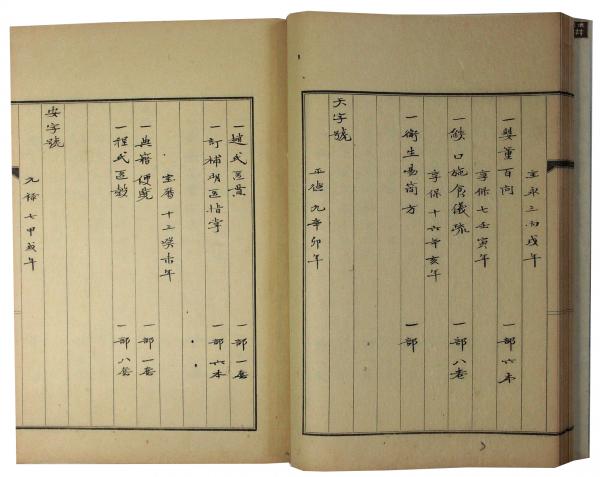 宝永三丙戌年
一嬰童百問 一部六本
享保七壬寅年
一燄口施食儀疏 一部八巻
享保十六辛亥年
一衛生易簡方 一部
天字號
正徳元辛卯年
一趙氏医貫 一部一套
一訂補明医指掌 一部六本
宝暦十三癸未年
一典籍便覧 一部一套
一程氏医彀 一部八套
安字號
元禄七甲戌年